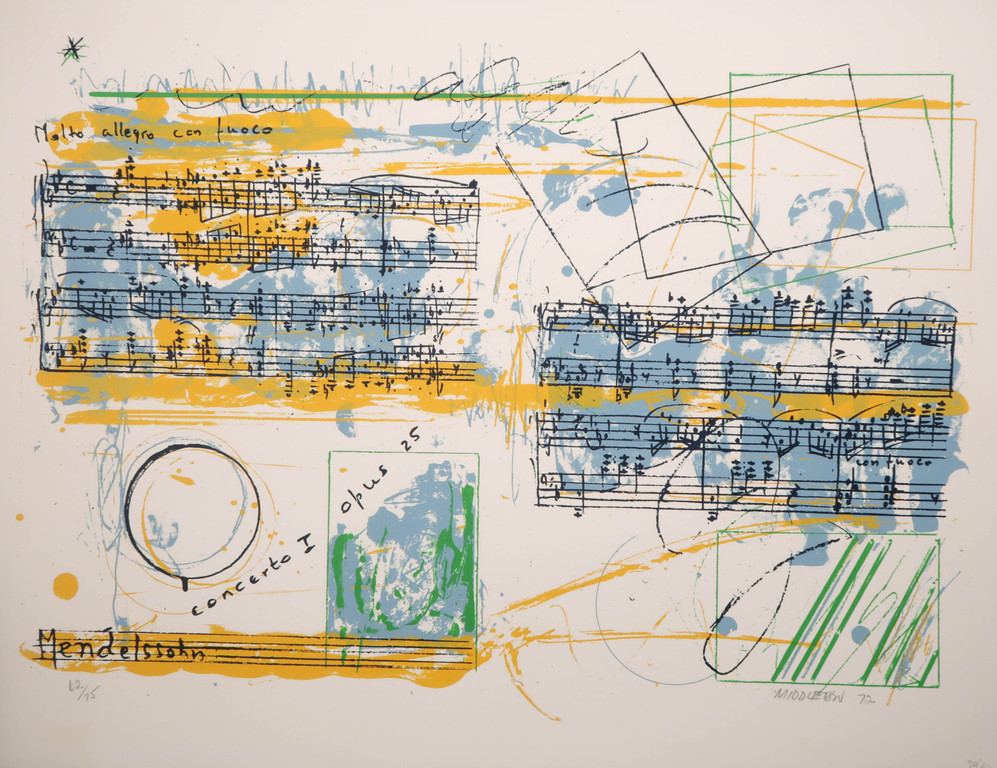 Molto allegro con fuoco
con fuoco
opus 25
concerto I
Mendelssohn
62/75
MIDDLETON 72